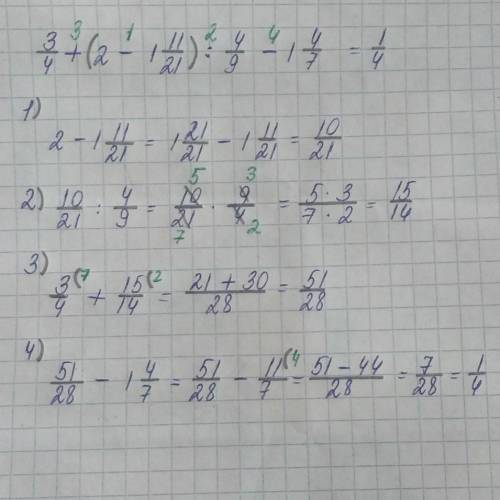 3/4 +³ (2 −¹ 1 11/21) :² 4/9 −⁴ 1 4/7 = 1/4
1)
2 − 1 11/21 = 1 21/21 − 1 11/21 = 10/21
2) 10/21 : 4/9 = 10⁵/21₇ · 9³/4₂ = 5·3/7·2 = 15/14
3)
3/4(⁷ + 15/14(² = 21 + 30/28 = 51/28
4)
51/28 − 1 4/7 = 51/28 − 11/7(⁴ = 51 − 44/28 = 7/28 = 1/4